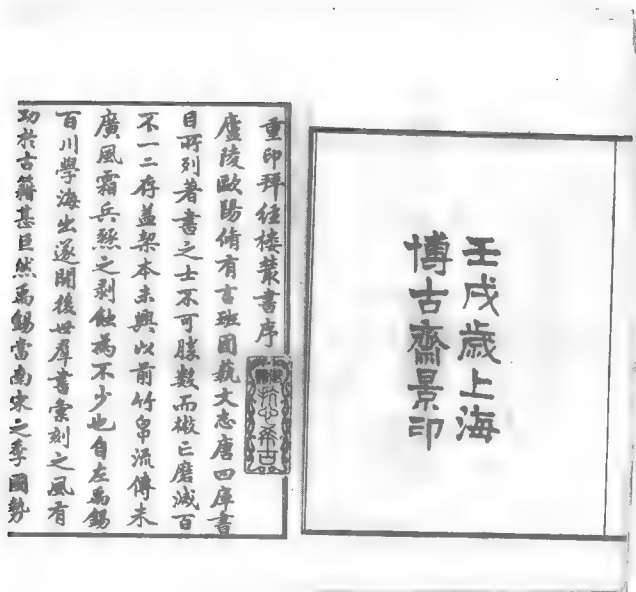 壬戌歲上海
博古齋景印
重印拜經樓叢書序
廬陵歐陽脩有言班固藝文志唐四庫書
目所列著書之士不可勝數而散亡磨滅百
不一二存蓋槧本未興以前竹帛流傳未
廣風霜兵燹之剥蝕為不少也自左禹錫
百川學海出遂開後世羣書彙刻之風有
功於古籍甚巨然禹錫當南宋之季國勢